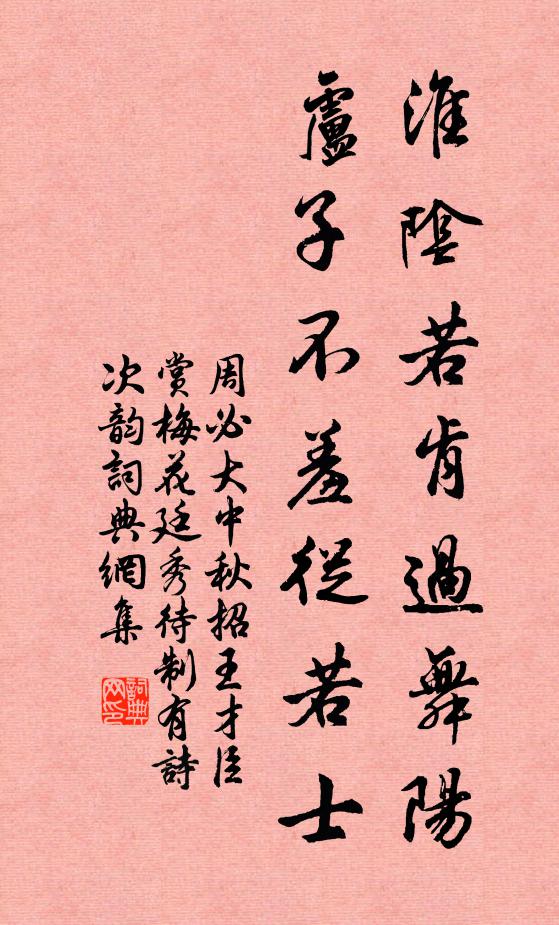 淮陰若肯過舞陽
盧子不羞從若士
周必大中秋招王才臣
賞梅花廷秀待制有詩
次韵詞典網集
詞典网印